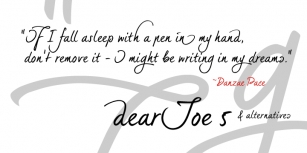 "If I fall asleep with a pen in my hand,
don't remove it - I might be writing in my dreams."
~Danzae Pace
dearJoe 5 & alternatives